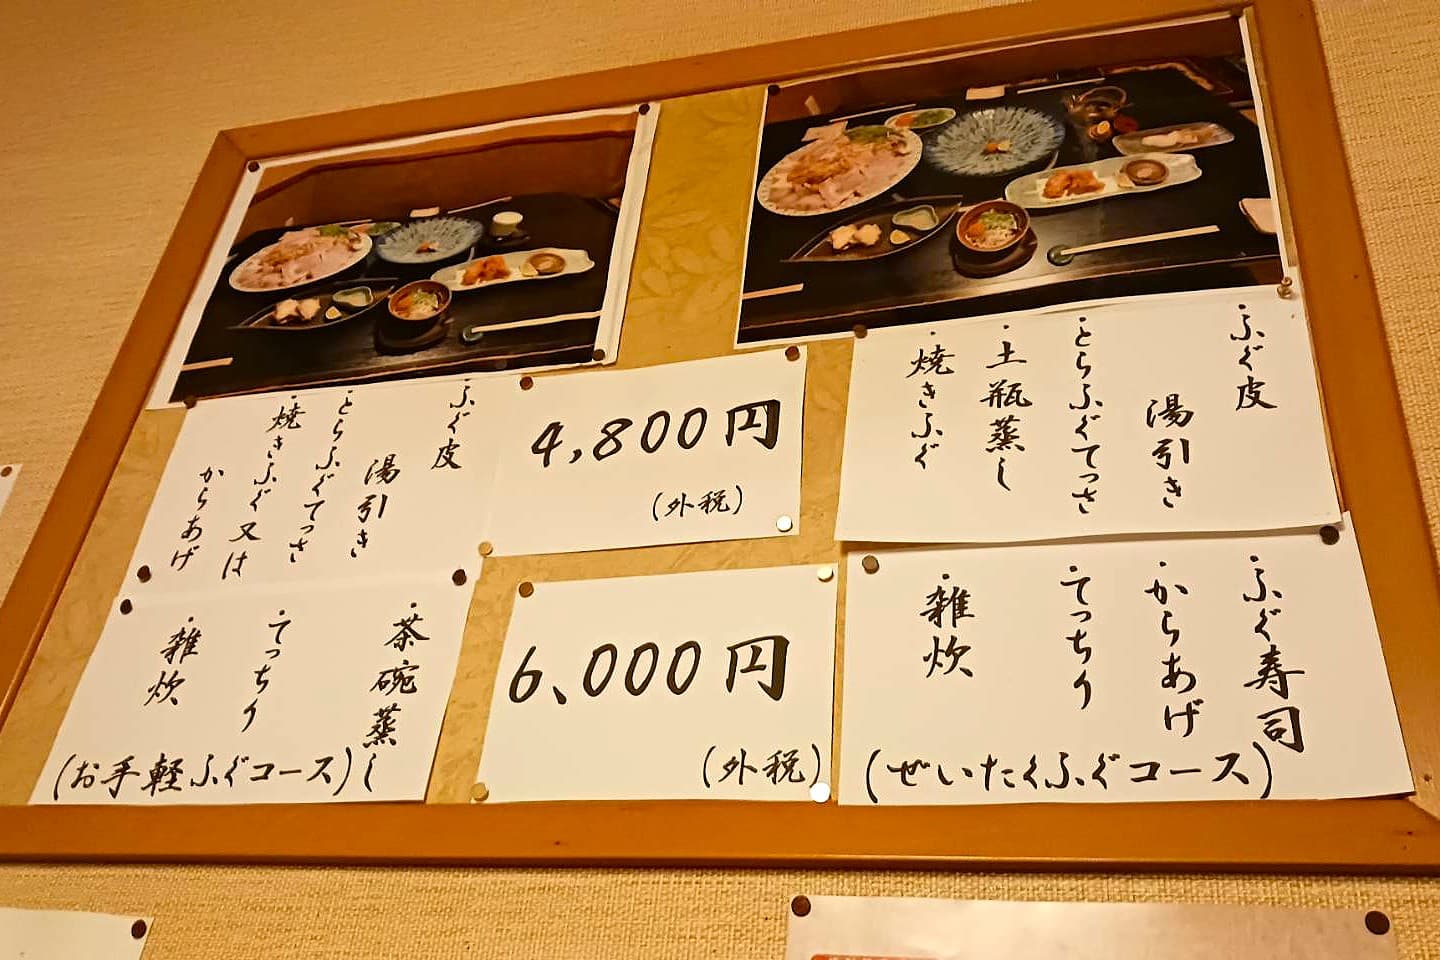 ・ふぐ皮
湯引き
・とらふぐてっさ
・焼きふぐ又は
からあげ
・茶碗蒸し
・てっちり
・雑炊
(お手軽ふぐコース)
4,800円
(外税)
6,000円
(外税)
・ふぐ皮
湯引き
・とらふぐてっさ
・土瓶蒸し
・焼きふぐ
・ふぐ寿司
・からあげ
・てっちり
・雑炊
(ぜいたくふぐコース)